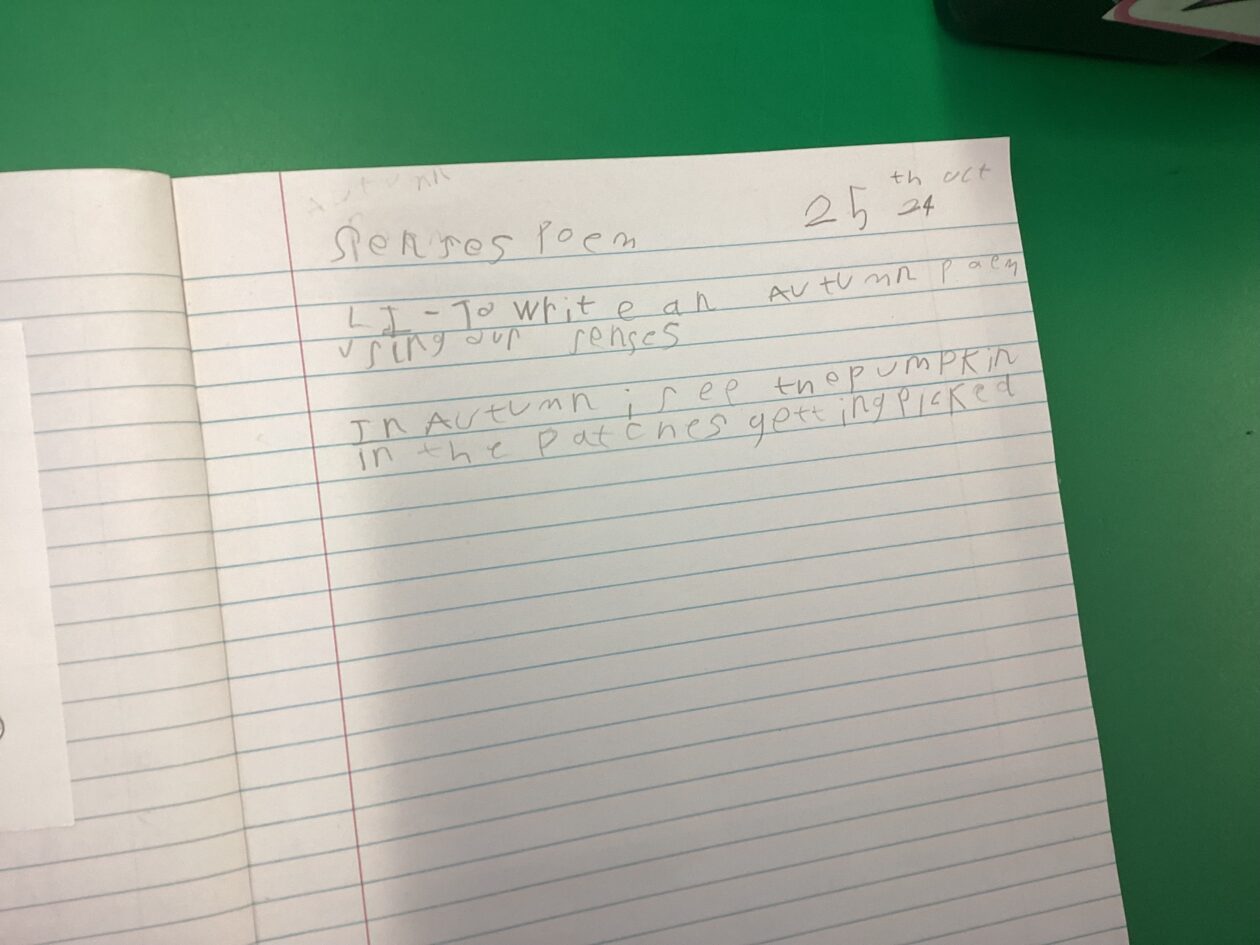 Autumn
Senses Poem
25th Oct 24
LI - To write an Autumn paem
using our senses
In Autumn i see the pumpkin
in the patches getting picked